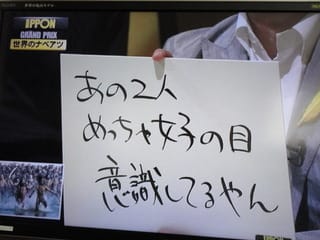 IPPON
GRAND PRIX
世界のナベアツ
あの2人
めっちゃ女子の目
意識してるやん